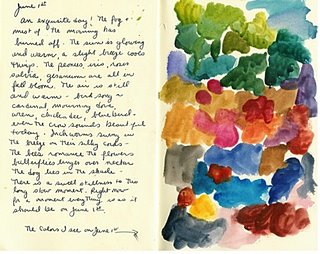 June 1st
An exquisite day! The fog
most of the morning has
burned off. The sun is glowing
and warm, a slight breeze cools
things. The peonies, iris, roses
salvia, geraniums are all in
full bloom. The air is still
and warms - bird song a
cardinal, mourning dove,
wren, chickadee, bluebird -
even the crow sounds beautiful
today. Inchworms swing in
the breeze on their silky cords -
The bees romance the flowers
butterflies linger over nectar
The dog lies in the shade -
There is a sweet stillness to this
long slow moment. Right now
for a moment everything is as it
should be on June 1st.
The Colors I see on June 1st